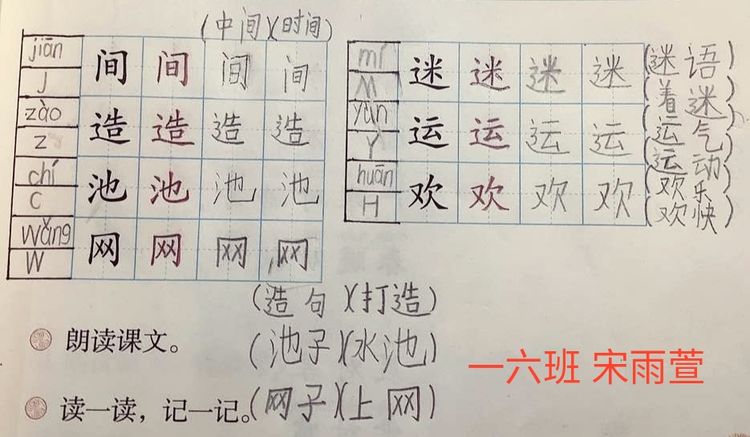 (中间)(时间)
jiān 间 间 间 间
J
zào 造 造 造 造
Z
chí 池 池 池 池
C
wǎng 网 网 网 网
W
mí 迷 迷 迷 迷 (迷语)
M (着迷)
yùn 运 运 运 运 (运气)
Y (运动)
huān 欢 欢 欢 欢 (欢乐)
H (欢快)
(造句)(打造)
朗读课文。(池子)(水池)
一六班 宋雨萱
读一读，记一记。(网子)(上网)